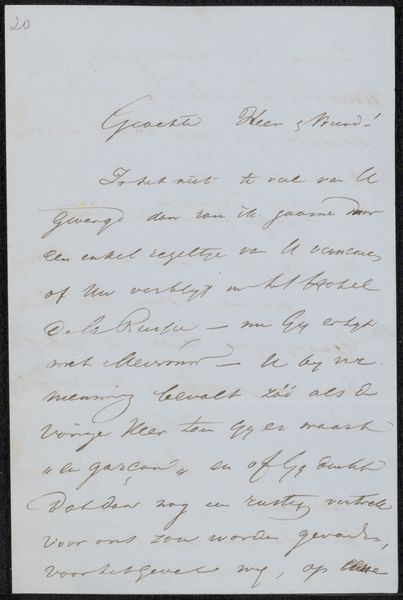 20
Geachte Heer & Vriend!
Is het niet te veel van U
gevergd dan zou ik gaarne door
een enkel regeltje van U vernemen
of Uw verblijf in het Hotel
De la Russie — nu Gij er zijt
met Mevrouw — U bij
bevalt zóó als de
vorige keer toen Gij er waart
"en garçon" en of Gij denkt
Dat daar nog een rustig vertrek
voor ons zou worden gevonden,
voor het geval wij, op